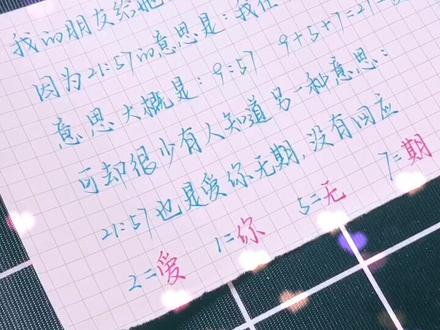 我的朋友给她
因为21:57的意思是:我在
意思大概是:9:57 9+5+7=21=
可却很少有人知道另一种意思:
21:57也是爱你无期,没有回应
2=爱 1=你 5=无 7=期